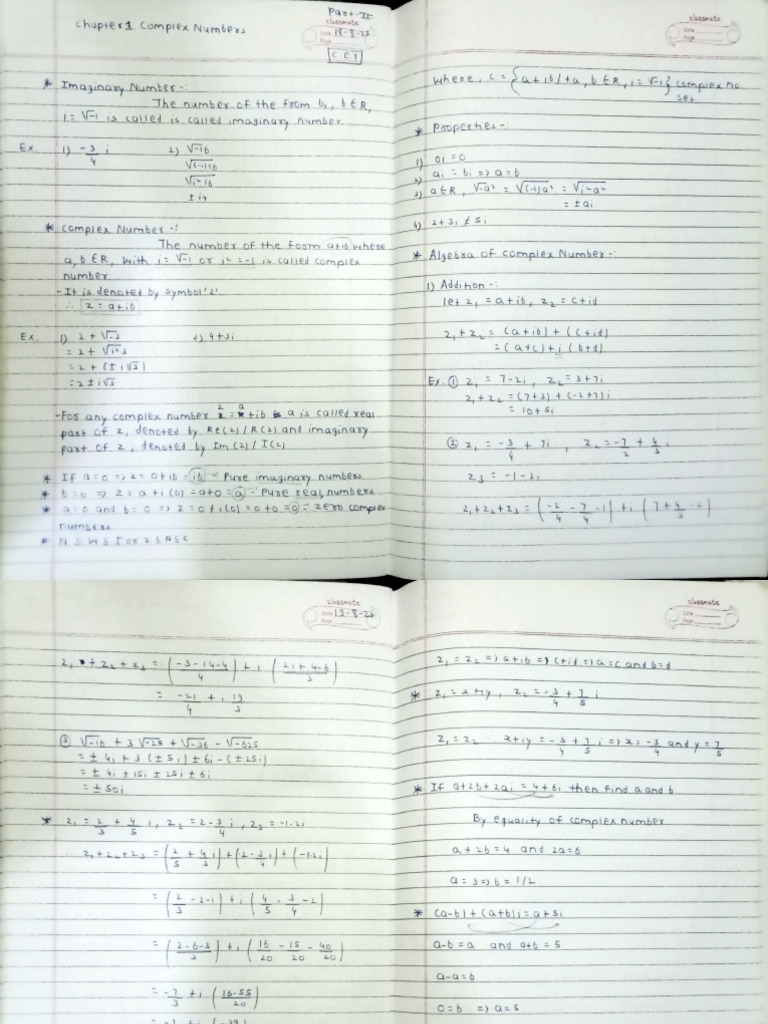 Chapter 1 Complex Numbers
Part-II
classmate
Date 18-8-23
Page
CET
* Imaginary Number -:
The number of the form bi, b ∈ R,
i = √-1 is called is called imaginary number.
Ex. 1) -3/4 i 2) √-16
√(-1)16
√i²16
± i4
* Complex Number -:
The number of the form a+ib where
a, b ∈ R, with i = √-1 or i² = -1 is called complex
number.
- It is denoted by symbol 'z'.
∴ z = a+ib
Ex. 1) 2 + √-3 2) 4+3i
= 2 + √i²3
= 2 + (± i√3)
= 2 ± i√3
- For any complex number z = a+ib a is called real
part of z, denoted by Re(z) / R(z) and imaginary
part of z, denoted by Im(z) / I(z)
* If a=0 => z = 0+ib = ib - Pure imaginary numbers
* b=0 => z = a+i(0) = a+0 = a - Pure real numbers
* a=0 and b=0 => z = 0+i(0) = 0+0 = 0 = Zero complex
numbers
* N ⊆ W ⊆ I or Z ⊆ Q ⊆ C
classmate
Date
Page
where, C = {a+ib / a, b ∈ R, i = √-1} complex no.
set
* Properties -
1) 0i = 0
2) ai = bi => a=b
3) a ∈ R, √-a² = √(-1)a² = √i²a²
= ± ai
4) 2+3i ≠ 5i
* Algebra of complex Number -:
1) Addition -:
let z₁ = a+ib, z₂ = c+id
z₁+z₂ = (a+ib) + (c+id)
= (a+c) + i (b+d)
Ex. ① z₁ = 7-2i, z₂ = 3+7i
z₁+z₂ = (7+3) + (-2+7)i
= 10+5i
② z₁ = -3/4 + 7i, z₂ = -7/2 + 4/3 i
z₃ = -1-2i
z₁+z₂+z₃ = (-2/4 - 7/4 - 1) + i (7 + 4/3 - 2)
classmate
Date 19-8-23
Page
z₁ + z₂ + z₃ = (-3-14-4/4) + i (21+4-6/3)
= -21/4 + i 19/3
③ √-16 + 3√-25 + √-36 - √-625
= ± 4i + 3(± 5i) ± 6i - (± 25i)
= ± 4i ± 15i ± 25i ± 6i
= ± 50i
* z₁ = 2/3 + 4/5 i, z₂ = 2 - 3/4 i, z₃ = -1-2i
∴ z₁+z₂+z₃ = (2/5 + 4/3 i) + (2 - 3/4 i) + (-1-2i)
= (2/3 - 2-1) + i (4/5 - 3/4 - 2)
= (2-6-3/3) + i (16/20 - 15/20 - 40/20)
= -7/3 + i (16-55/20)
= -7 + i (-39)
classmate
Date
Page
z₁ = z₂ => a+ib => c+id => a=c and b=d
* z₁ = x+iy, z₂ = -3/4 + 7/5 i
z₁ = z₂ ∴ x+iy = -3/4 + 7/5 i => x = -3/4 and y = 7/5
* If a+2b+2ai = 4+6i then find a and b
By equality of complex number
a+2b=4 and 2a=6
a=3 => b = 1/2
* (a-b) + (a+b)i = a+5i
a-b=a and a+b=5
a-a=b
0=b => a=5